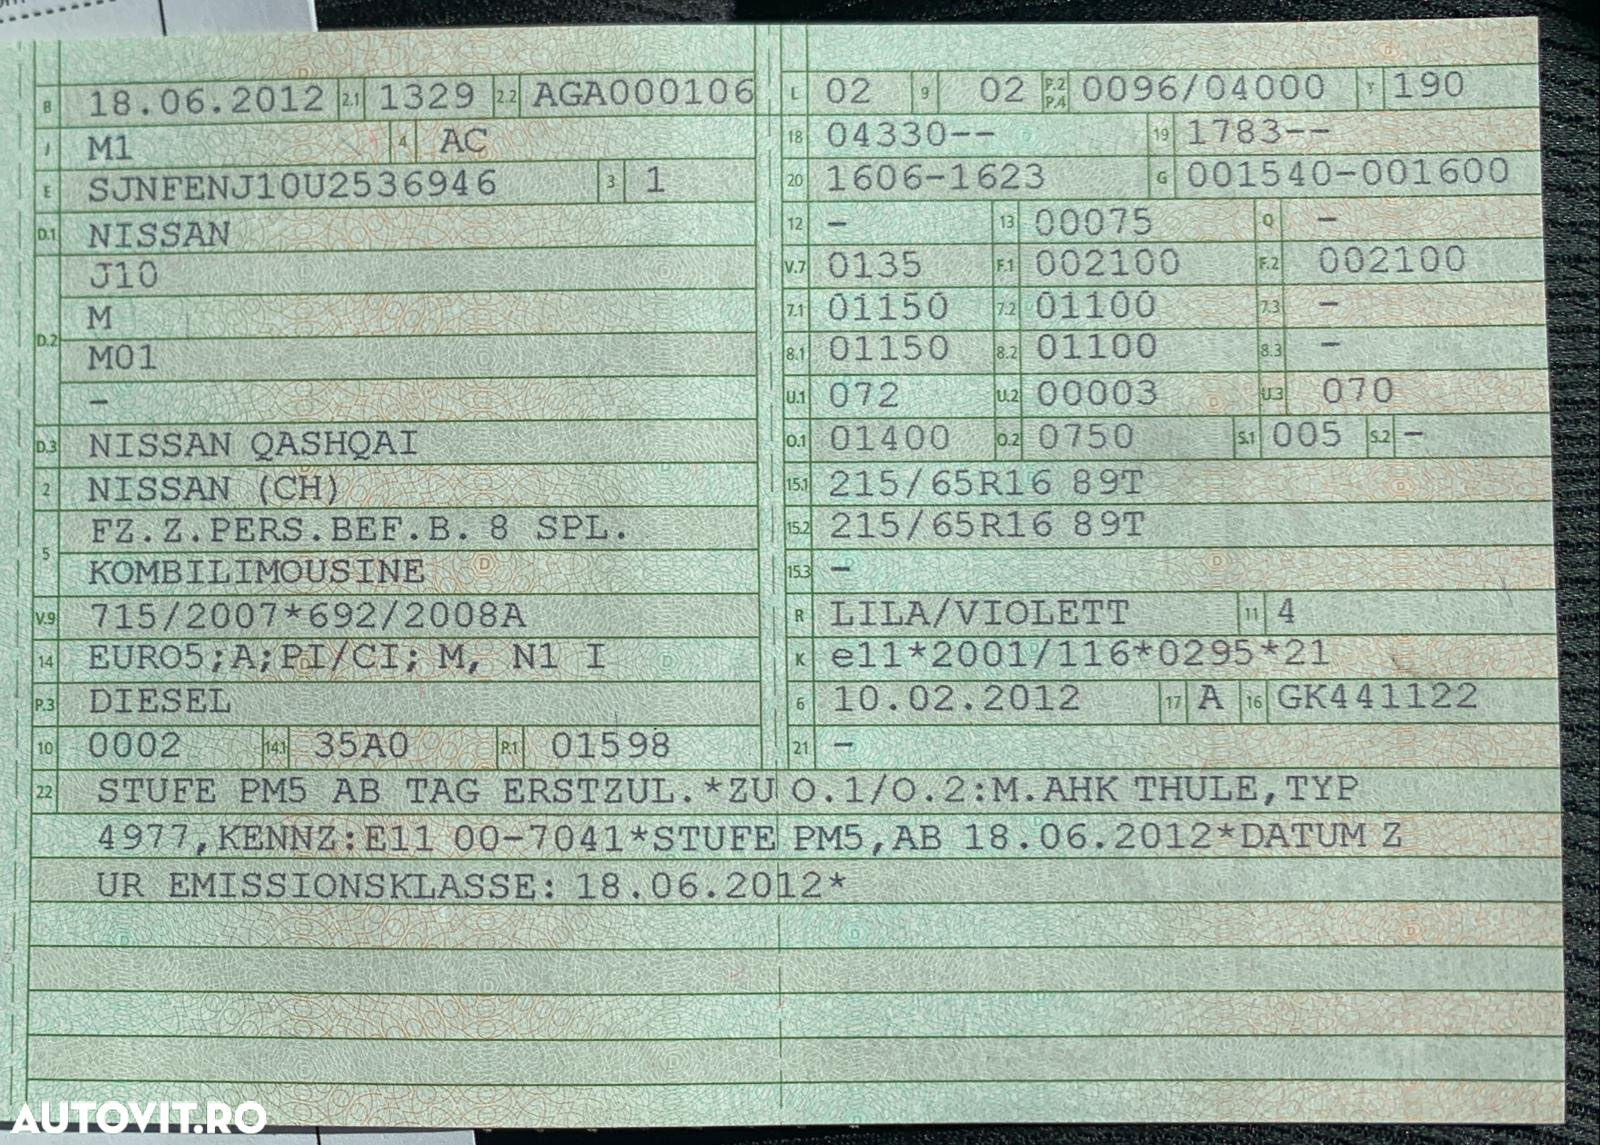 B 18.06.2012 2.1 1329 2.2 AGA000106
J M1 4 AC
E SJNFENJ10U2536946 3 1
D.1 NISSAN
J10
M
D.2 M01
–
D.3 NISSAN QASHQAI
2 NISSAN (CH)
FZ.Z.PERS.BEF.B. 8 SPL.
5 KOMBILIMOUSINE
V.9 715/2007*692/2008A
14 EURO5;A;PI/CI; M, N1 I
P.3 DIESEL
10 0002 14.1 35A0 P.1 01598
L 02 9 02 P.2 P.4 0096/04000 T 190
18 04330-- 19 1783--
20 1606-1623 G 001540-001600
12 – 13 00075 Q –
V.7 0135 F.1 002100 F.2 002100
7.1 01150 7.2 01100 7.3 –
8.1 01150 8.2 01100 8.3 –
U.1 072 U.2 00003 U.3 070
O.1 01400 O.2 0750 S.1 005 S.2 –
15.1 215/65R16 89T
15.2 215/65R16 89T
15.3 –
R LILA/VIOLETT 11 4
K e11*2001/116*0295*21
6 10.02.2012 17 A 16 GK441122
21 –
22 STUFE PM5 AB TAG ERSTZUL.*ZU O.1/O.2:M.AHK THULE,TYP
4977,KENNZ:E11 00-7041*STUFE PM5,AB 18.06.2012*DATUM Z
UR EMISSIONSKLASSE: 18.06.2012*
AUTOVIT.RO